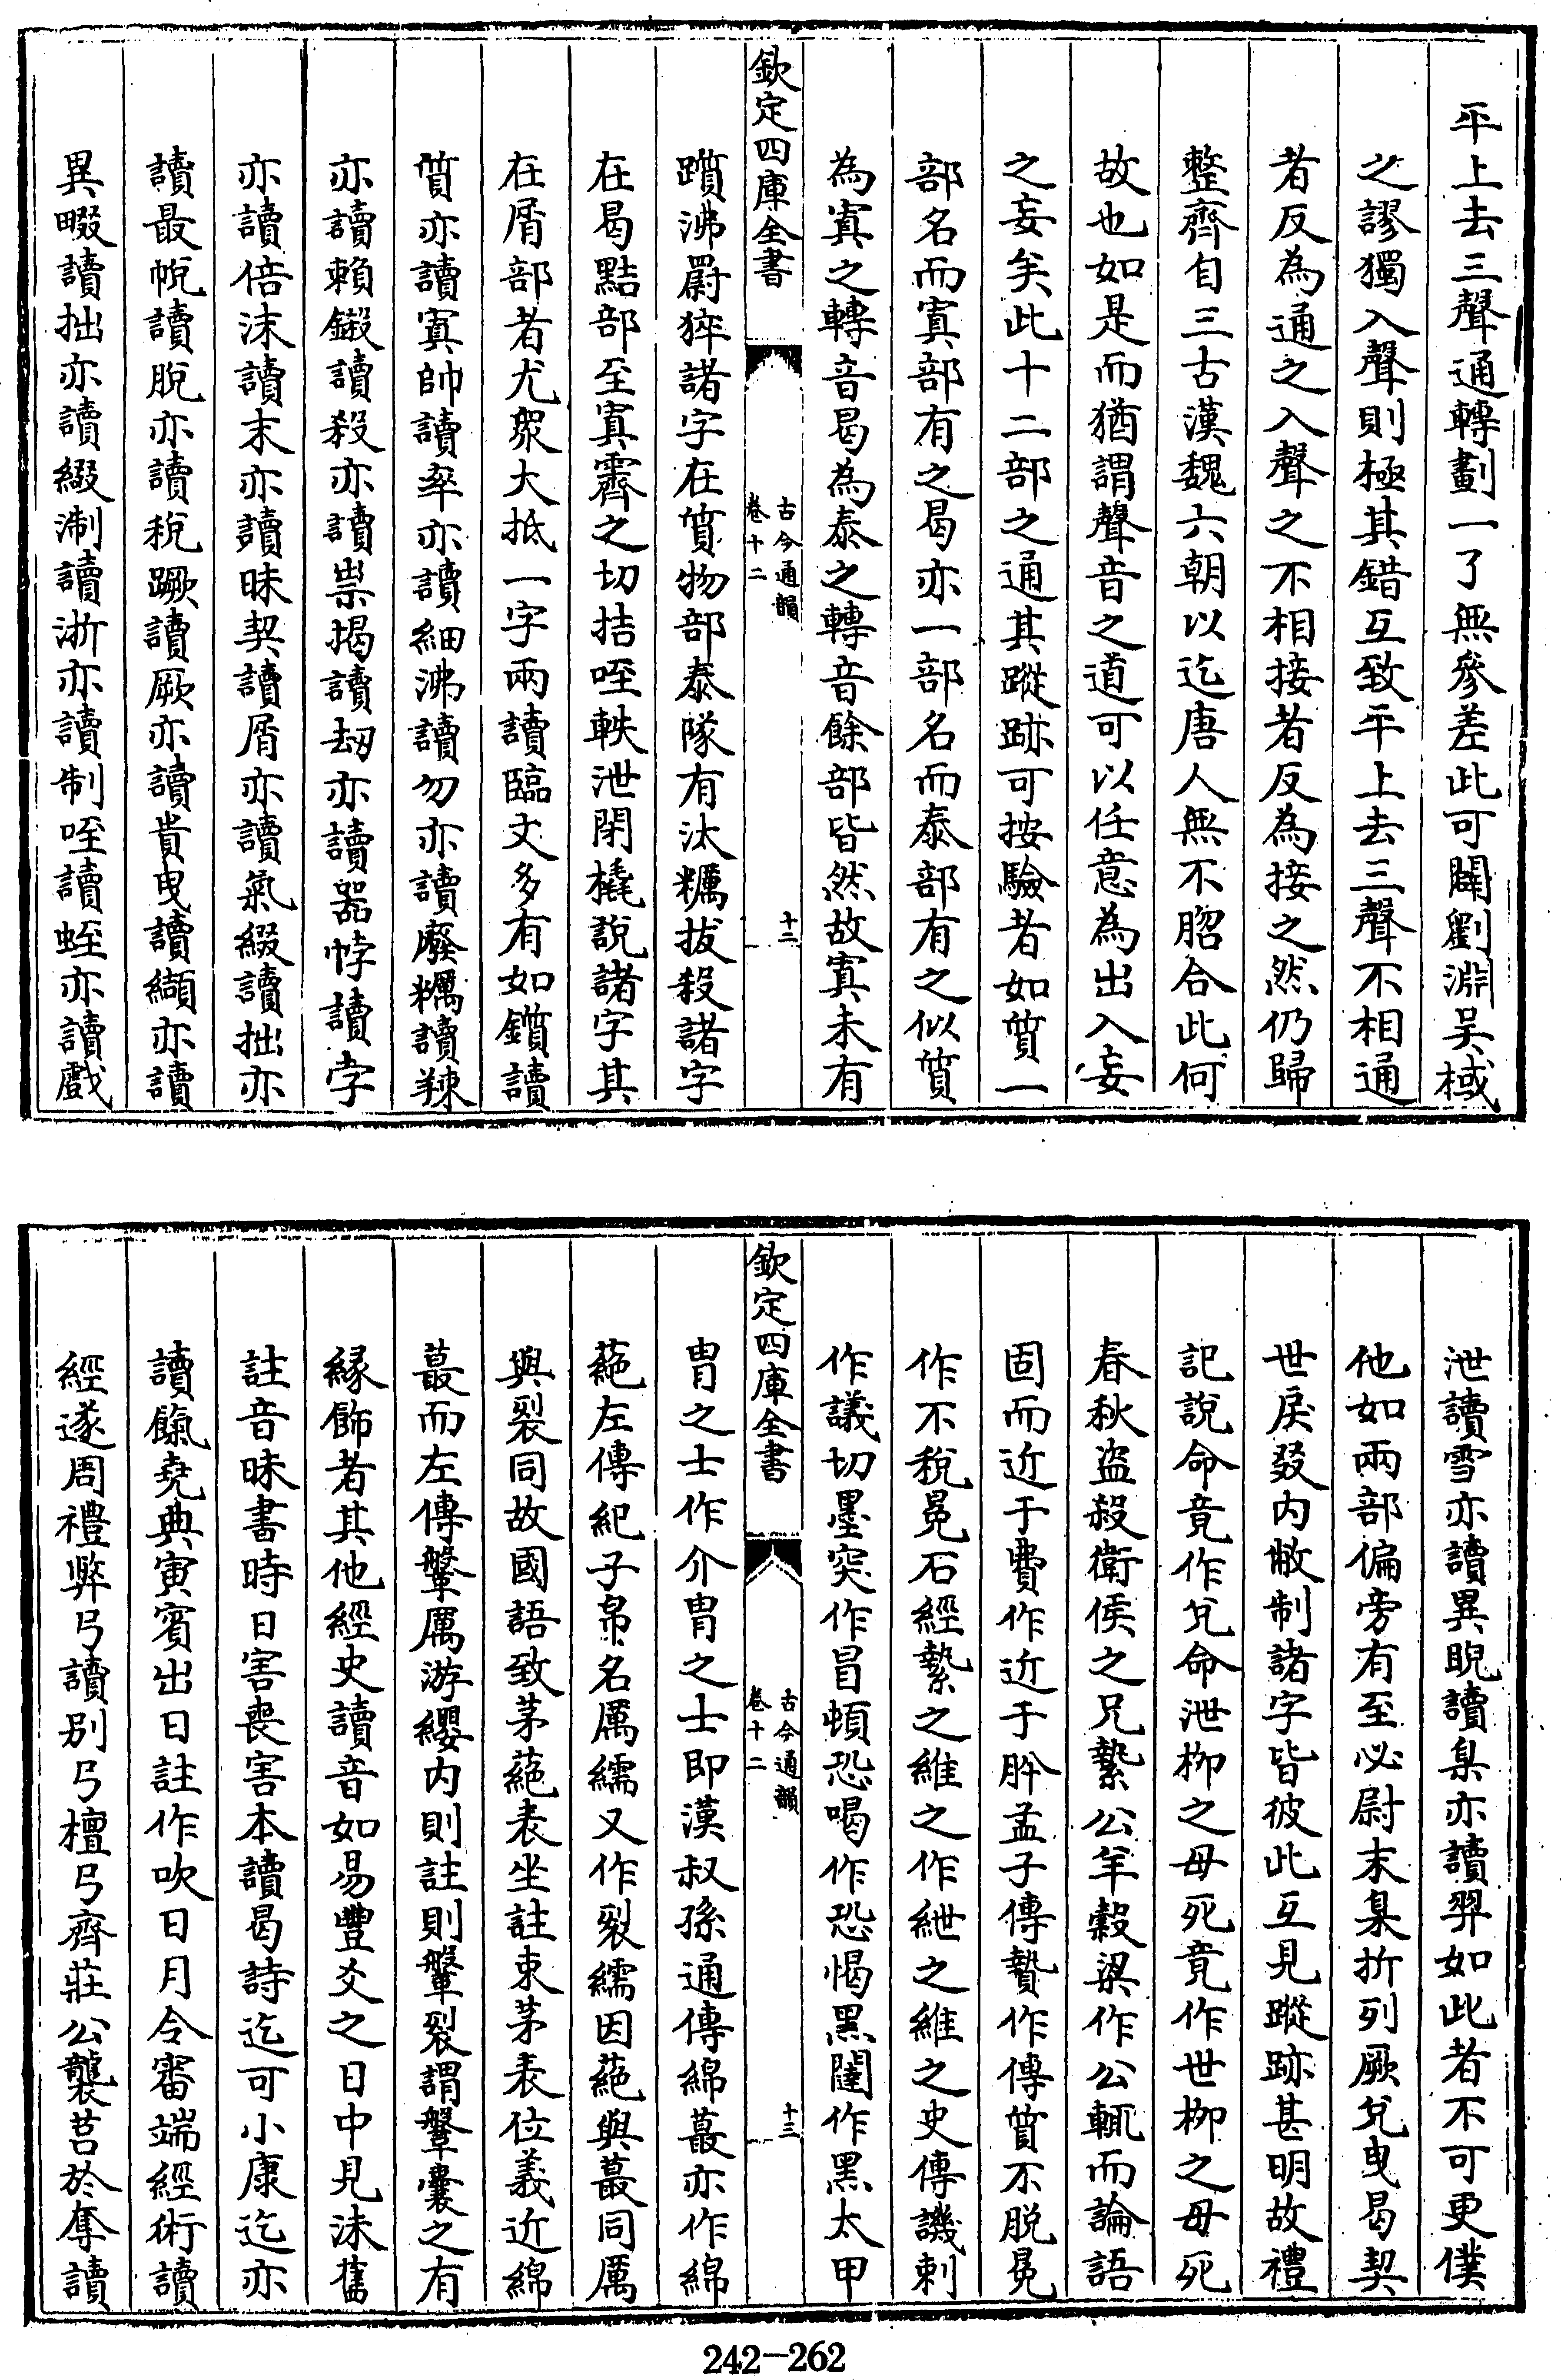 平上去三聲通轉劃一了無參差此可闢劉淵吳棫
之謬獨入聲則極其錯互致平上去三聲不相通
者反為通之入聲之不相接者反為接之然仍歸
整齊自三古漢魏六朝以迄唐人無不脗合此何
故也如是而猶謂聲音之道可以任意為出入妄
之妄矣此十二部之通其蹤跡可按驗者如質一
部名而寘部有之曷亦一部名而泰部有之似質
為寘之轉音曷為泰之轉音餘部皆然故寘未有
欽定四庫全書
古今通韻
卷十二
十二
躓沸罻猝諸字在質物部泰隊有汰糲拔殺諸字
在曷黠部至寘霽之切拮咥軼泄閉橇說諸字其
在屑部者尤衆大抵一字兩讀臨文多有如鑕讀
質亦讀寘帥讀率亦讀細沸讀勿亦讀廢糲讀辣
亦讀賴鎩讀殺亦讀祟揭讀刼亦讀器悖讀孛
亦讀倍沫讀末亦讀昧契讀屑亦讀氣綴讀拙亦
讀最帨讀脫亦讀稅蹶讀厥亦讀貴曳讀纈亦讀
異畷讀拙亦讀綴淛讀浙亦讀制咥讀蛭亦讀戲
泄讀雪亦讀異睨讀臬亦讀羿如此者不可更僕
他如兩部偏旁有至必尉末臬折列厥兌曳曷契
世戾癹内敝制諸字皆彼此互見蹤跡甚明故禮
記說命竟作兌命泄柳之母死竟作世柳之母死
春秋盜殺衛侯之兄縶公羊穀梁作公輒而論語
固而近于費作近于肸孟子傳贄作傳質不脫冕
作不稅冕石經縶之維之作紲之維之史傳譏刺
作議切墨突作冒頓恐喝作恐愒黑闥作黑太甲
欽定四庫全書
古今通韻
卷十二
十三
胄之士作介胄之士即漢叔孫通傳綿蕞亦作綿
蕝左傳紀子帛名厲繻又作裂繻因蕝與蕞同厲
與裂同故國語致茅蕝表坐註束茅表位義近綿
蕞而左傳鞶厲游纓内則註則鞶裂謂鞶囊之有
緣飾者其他經史讀音如易豐爻之日中見沬舊
註音昧書時日害喪害本讀曷詩迄可小康迄亦
讀餼堯典寅賓出日註作吹日月令審端經術讀
經遂周禮弊弓讀別弓檀弓齊莊公襲莒於奪讀
242-262